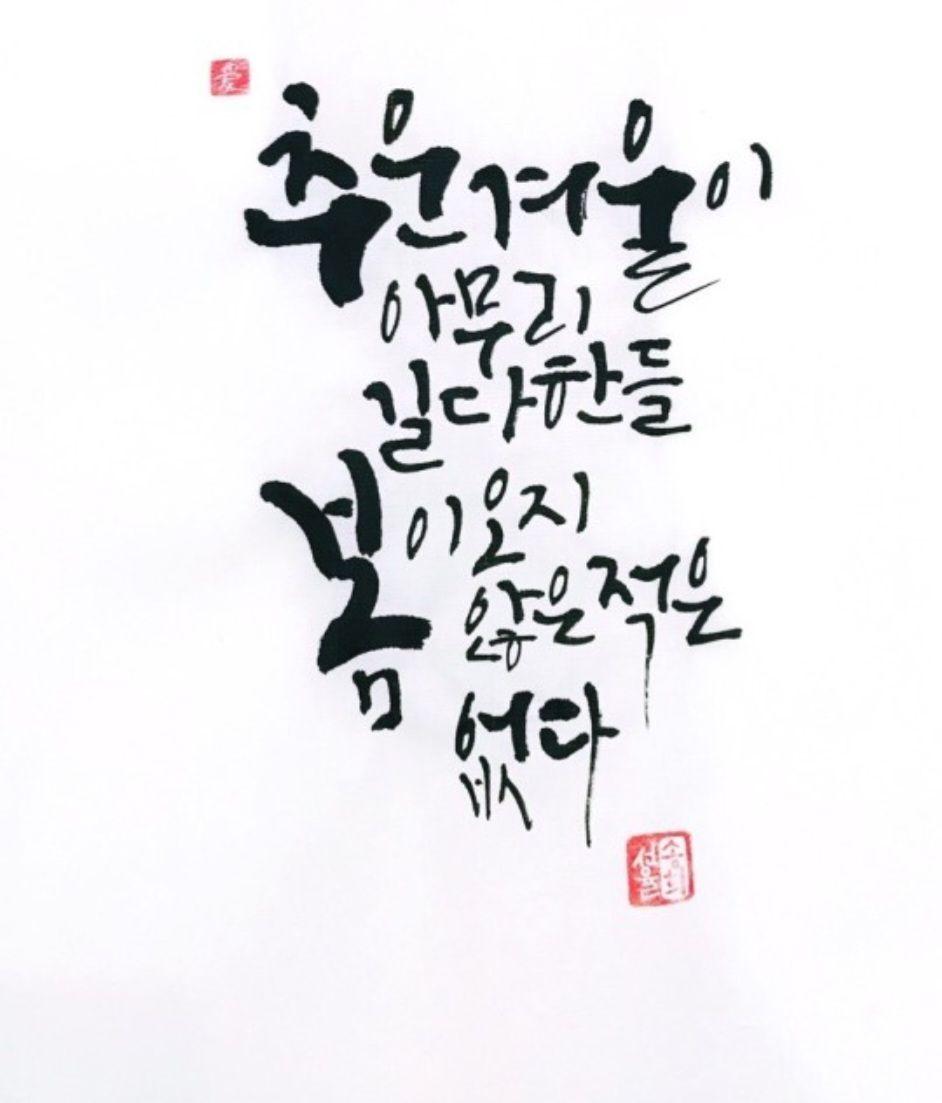 愛
추운겨울이
아무리
길다한들
봄이오지
않은적은
없다